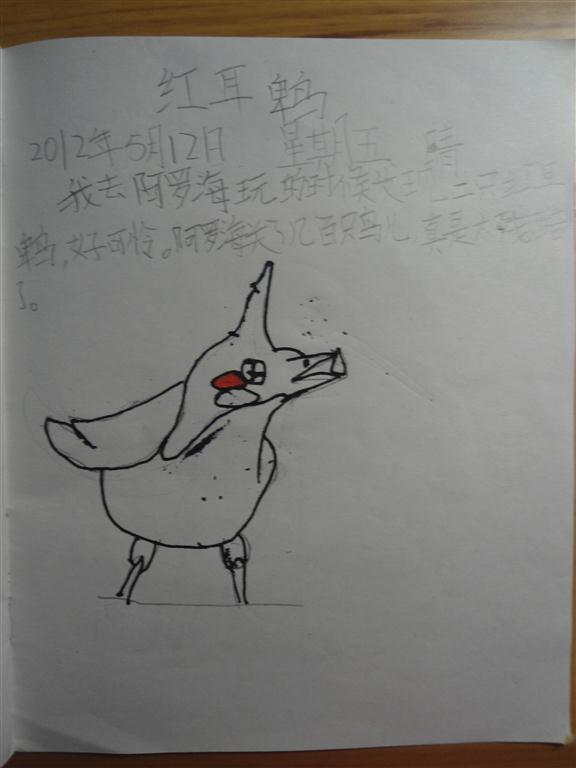 红耳鹎
2012年5月12日 星期五 晴
我去阿罗海玩的时候发现二只红耳
鹎,好可怜。阿罗海关了几百只鸟儿,真是太残
了。